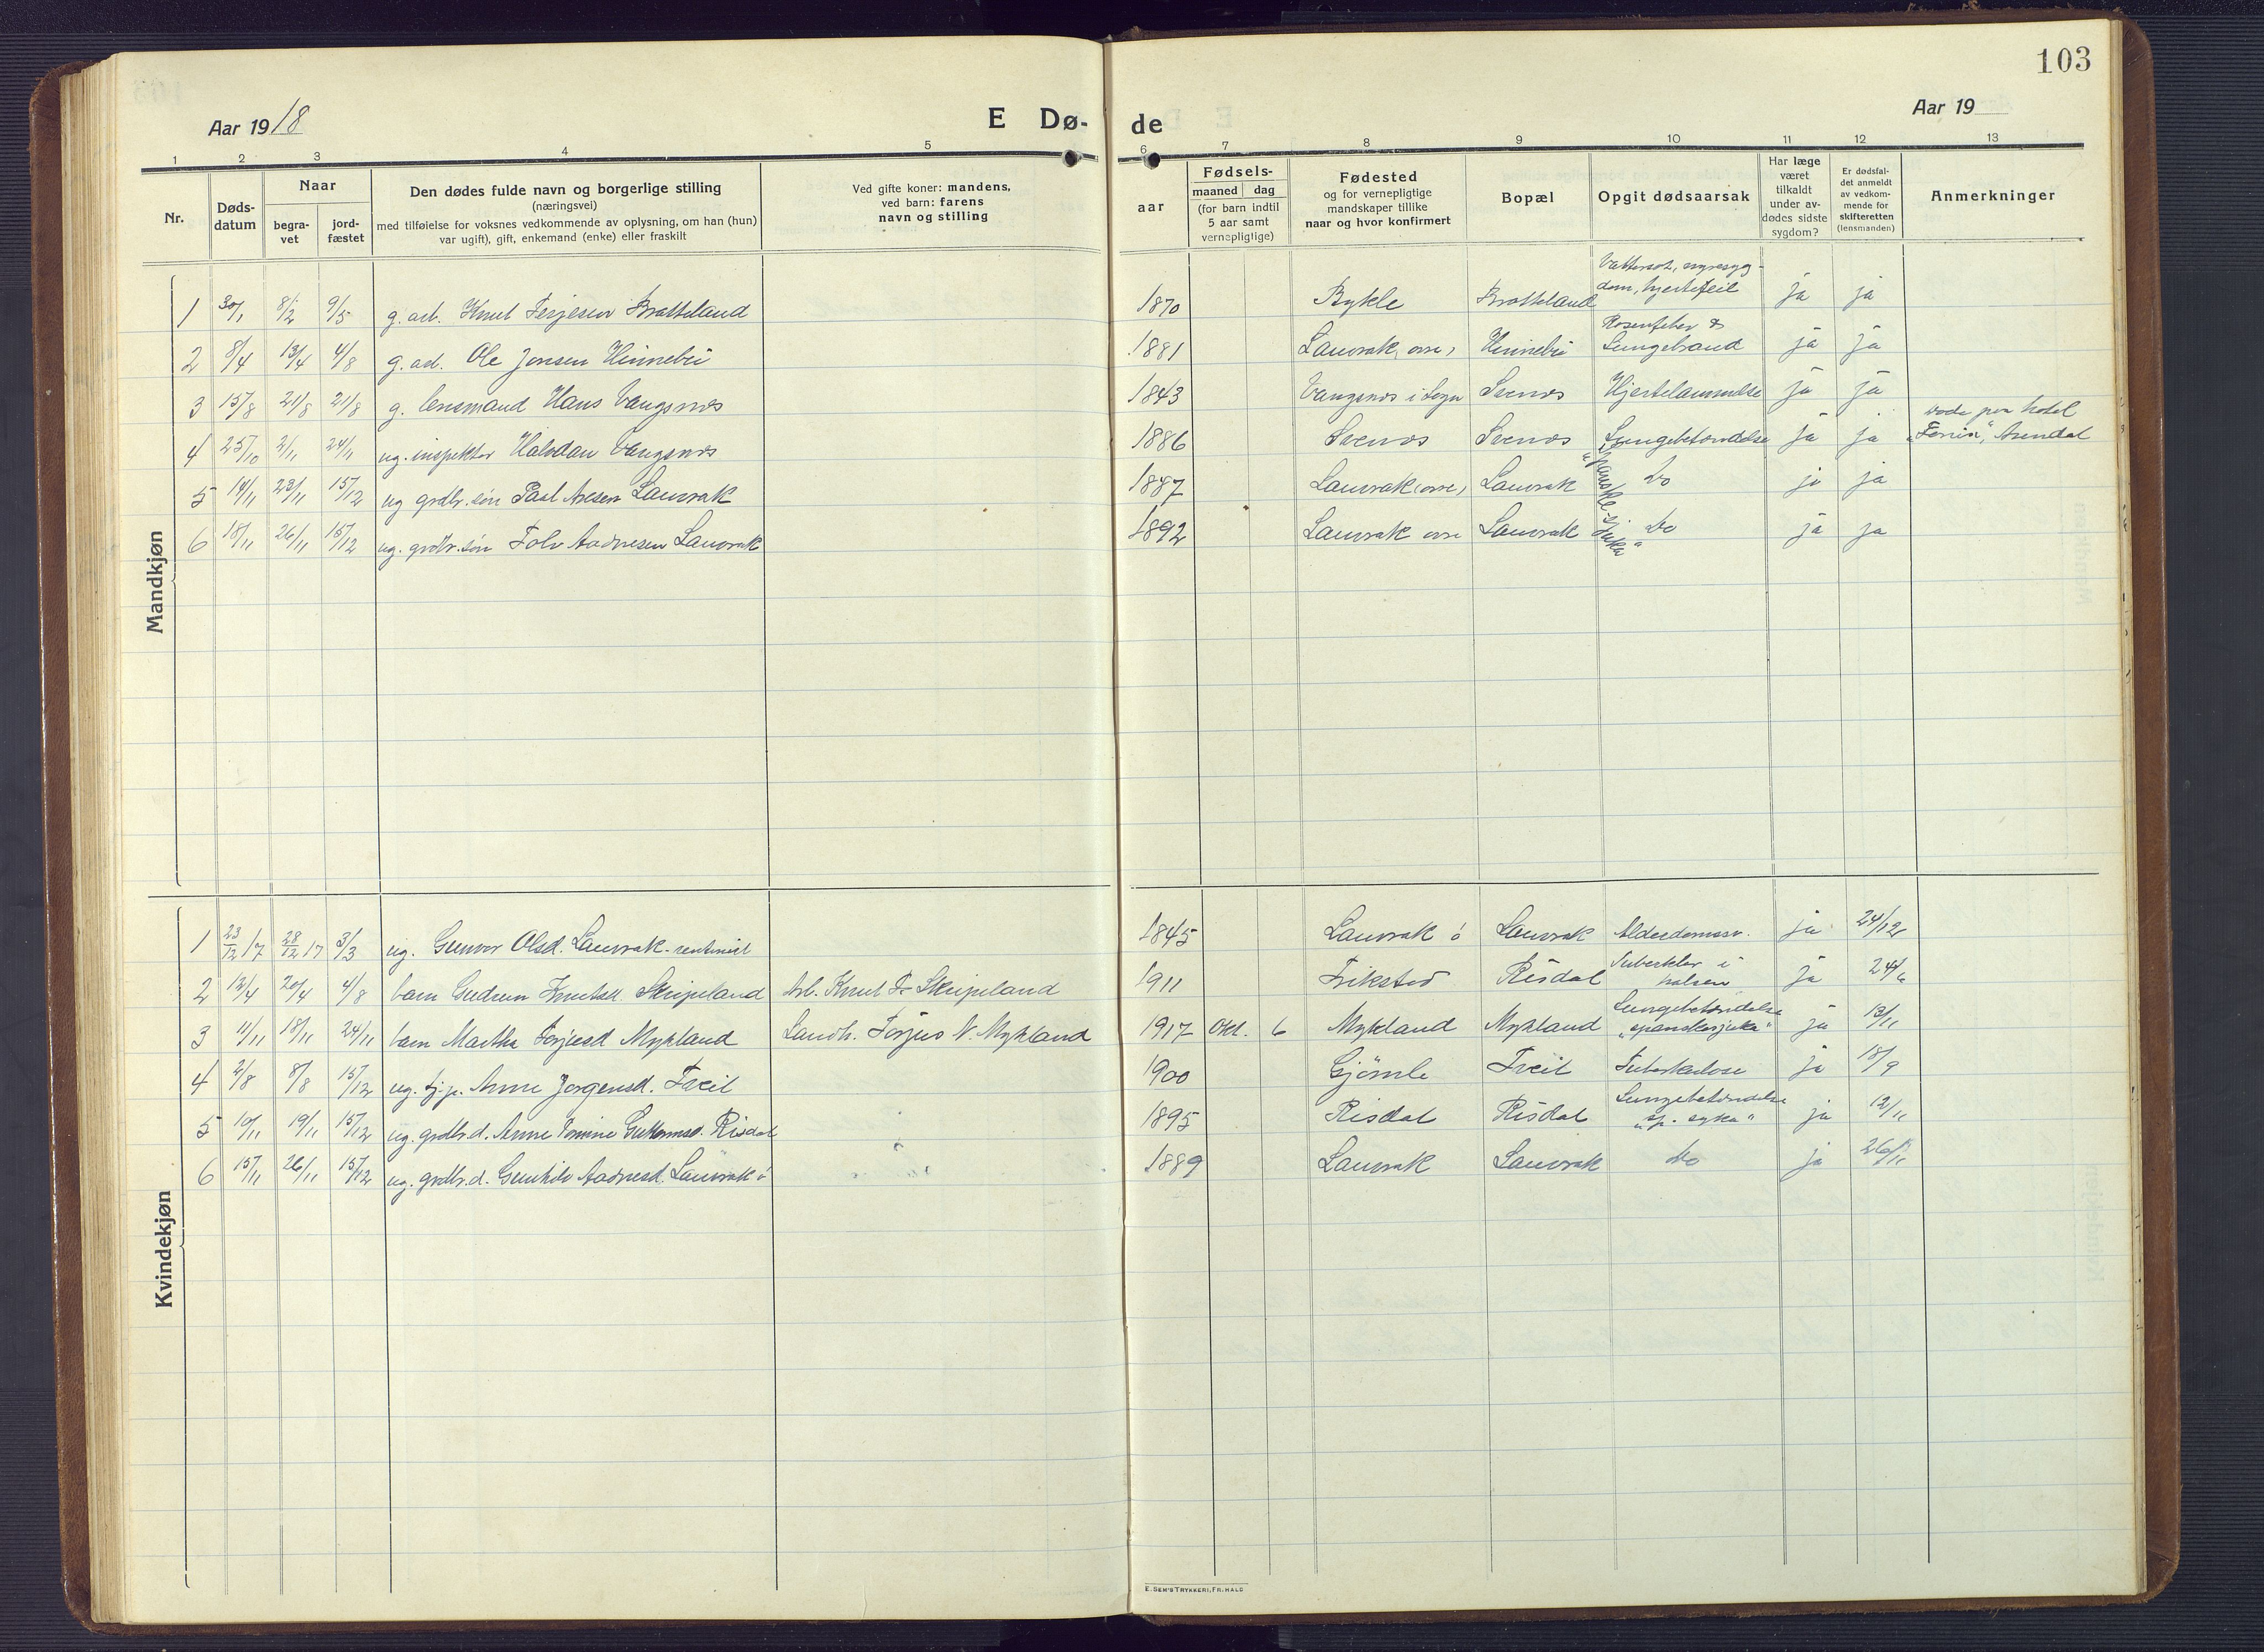 103
Aar 1918
E Dø-
de
Aar 19
1 2 3 4 5 6 7 8 9 10 11 12 13
Nr.
Døds-
datum
Naar
begra-
vet
jord-
fæstet
Den dødes fulde navn og borgerlige stilling
(næringsvei)
med tilføielse for voksnes vedkommende av oplysning, om han (hun)
var ugift), gift, enkemand (enke) eller fraskilt
Ved gifte koner: mandens,
ved barn: farens
navn og stilling
aar
Fødsels-
maaned dag
(for barn indtil
5 aar samt
vernepligtige)
Fødested
og for vernepligtige
mandskaper tillike
naar og hvor konfirmert
Bopæl
Opgit dødsaarsak
Har læge
været
tilkaldt
under av-
dødes sidste
sygdom?
Er dødsfal-
det anmeldt
av vedkom-
mende for
skifteretten
(lensmanden)
Anmerkninger
Mandkjøn
1 30/1 8/2 9/5 g. arb. Knut Terjesen Bratteland 1870 Bykle Bratteland Vattersot, nyresyg-
dom, hjertefeil ja ja
2 8/4 13/4 4/8 g. arb. Ole Jensen Hinnebu 1881 Lauvrak, øvre, Hinnebu Rosenfeber &
Lungebrand ja ja
3 15/8 21/8 21/8 g. lensmand Hans Vangsnes 1843 Vangsnes i Sogn Svenes Hjertelammelse ja ja
4 25/10 2/11 24/11 ug. inspektør Halvdan Vangsnes 1886 Svenes Svenes Lungebetændelse ja ja døde paa hotel
"Fønix", Arendal
5 14/11 23/11 15/12 ug grdbr. søn Paal Aasen Lauvrak 1887 Lauvrak (øvre) Lauvrak do ja ja
6 18/11 26/11 15/12 ug. grdbr. søn Tolv Aadnesen Lauvrak 1892 Lauvrak øvre Lauvrak do ja ja
"spanske-
sjuka"
Kvindekjøn
1 23/12 17 28/12 17 3/3 ug. Gunvor Olsd. Lauvrak 1845 Lauvrak ö Lauvrak Alderdomssv. ja 24/12
2 12/4 20/4 4/8 barn Gudrun Knutsd. Skripeland arb. Knut Skripeland 1911 Frikstad Risdal Tuberkler i
halsen ja 24/6
3 11/11 18/11 24/11 barn Martha Torjusd Mykland Landh. Torjus N. Mykland 1917 Okt. 6 Mykland Mykland Lungebetændelse
"spanskesjuka" ja 13/11
4 2/8 8/8 15/12 ug. tj.p. Anne Jorgensd. Tveit 1900 Gjömle Tveit Tuberkulose ja 18/9
5 10/11 19/11 15/12 ug. grdbr.d. Anne Tomine Guttormsd. Risdal 1895 Risdal Risdal Lungebetændelse
"sp. syka" ja 12/11
6 15/11 26/11 15/12 ug. grdbr.d. Gunhild Aadnesd. Lauvrak ö 1889 Lauvrak Lauvrak do ja 26/11
E. SEM'S TRYKKERI, FR.HALD